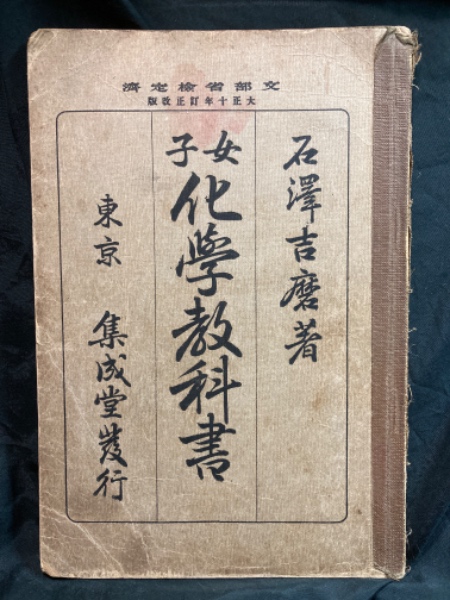 文部省検定済
大正十年訂正改版
石澤吉麿著
女子
化學教科書
東京 集成堂發行